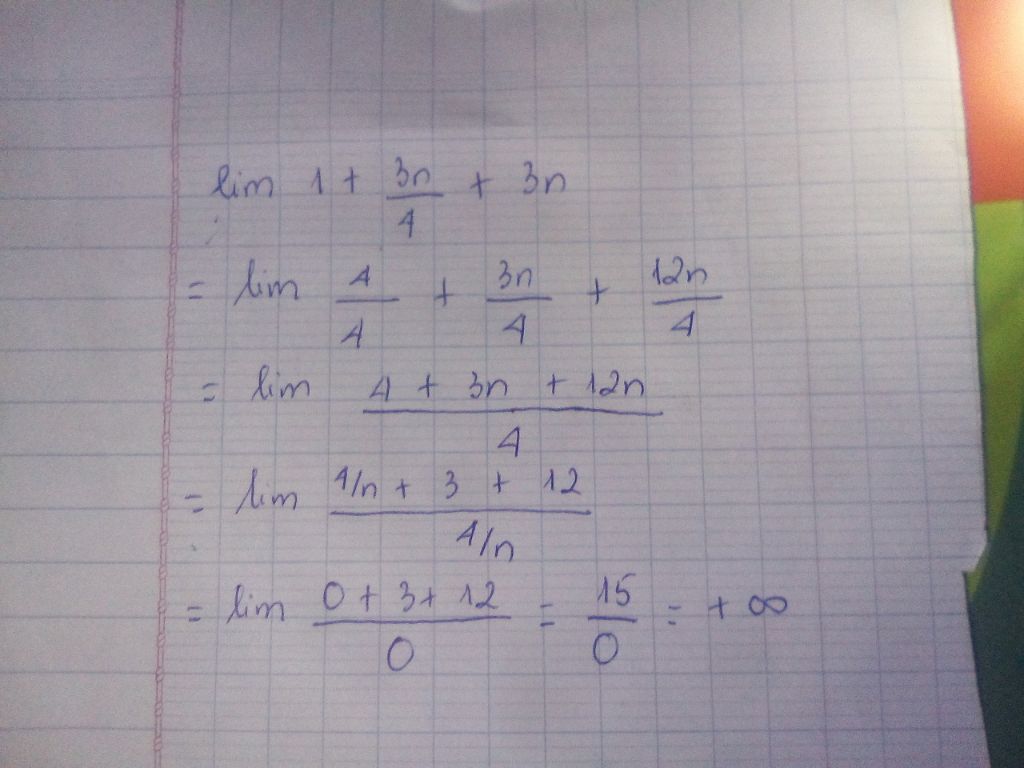 lim 1 + 3n/4 + 3n
= lim 4/4 + 3n/4 + 12n/4
= lim (4 + 3n + 12n)/4
= lim (4/n + 3 + 12)/(4/n)
= lim (0 + 3 + 12)/0 = 15/0 = + ∞